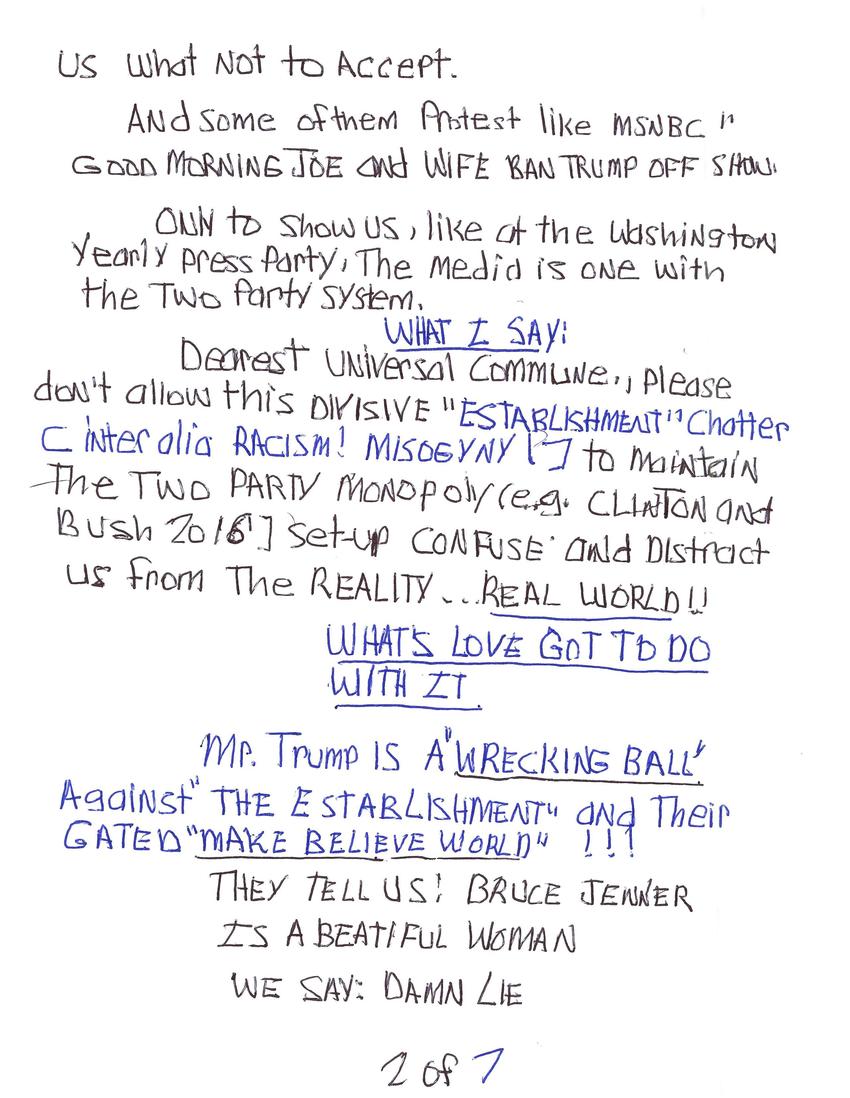 US What Not to Accept.
ANd some of them Protest like MSNBC "
GOOD MORNING JOE and WIFE BAN TRUMP OFF SHOW.
OWN to show us, like at the Washington
Yearly press Party, The Media is one with
the Two Party system.
WHAT I SAY:
Dearest Universal Commune,, please
don't allow this DIVISIVE "ESTABLISHMENT" Chatter
[ inter alia RACISM! MISOGYNY ! ] to maintain
The TWO PARTY MONOPOLY (e.g. CLINTON and
Bush 2016] set-up CONFUSE and Distract
us from The REALITY...REAL WORLD!!
WHAT'S LOVE GOT TO DO
WITH IT.
Mr. Trump IS A "WRECKING BALL"
Against "THE ESTABLISHMENT" and Their
GATED "MAKE BELIEVE WORLD" !!!
THEY TELL US! BRUCE JENNER
IS A BEATIFUL WOMAN
WE SAY: DAMN LIE
2 of 7